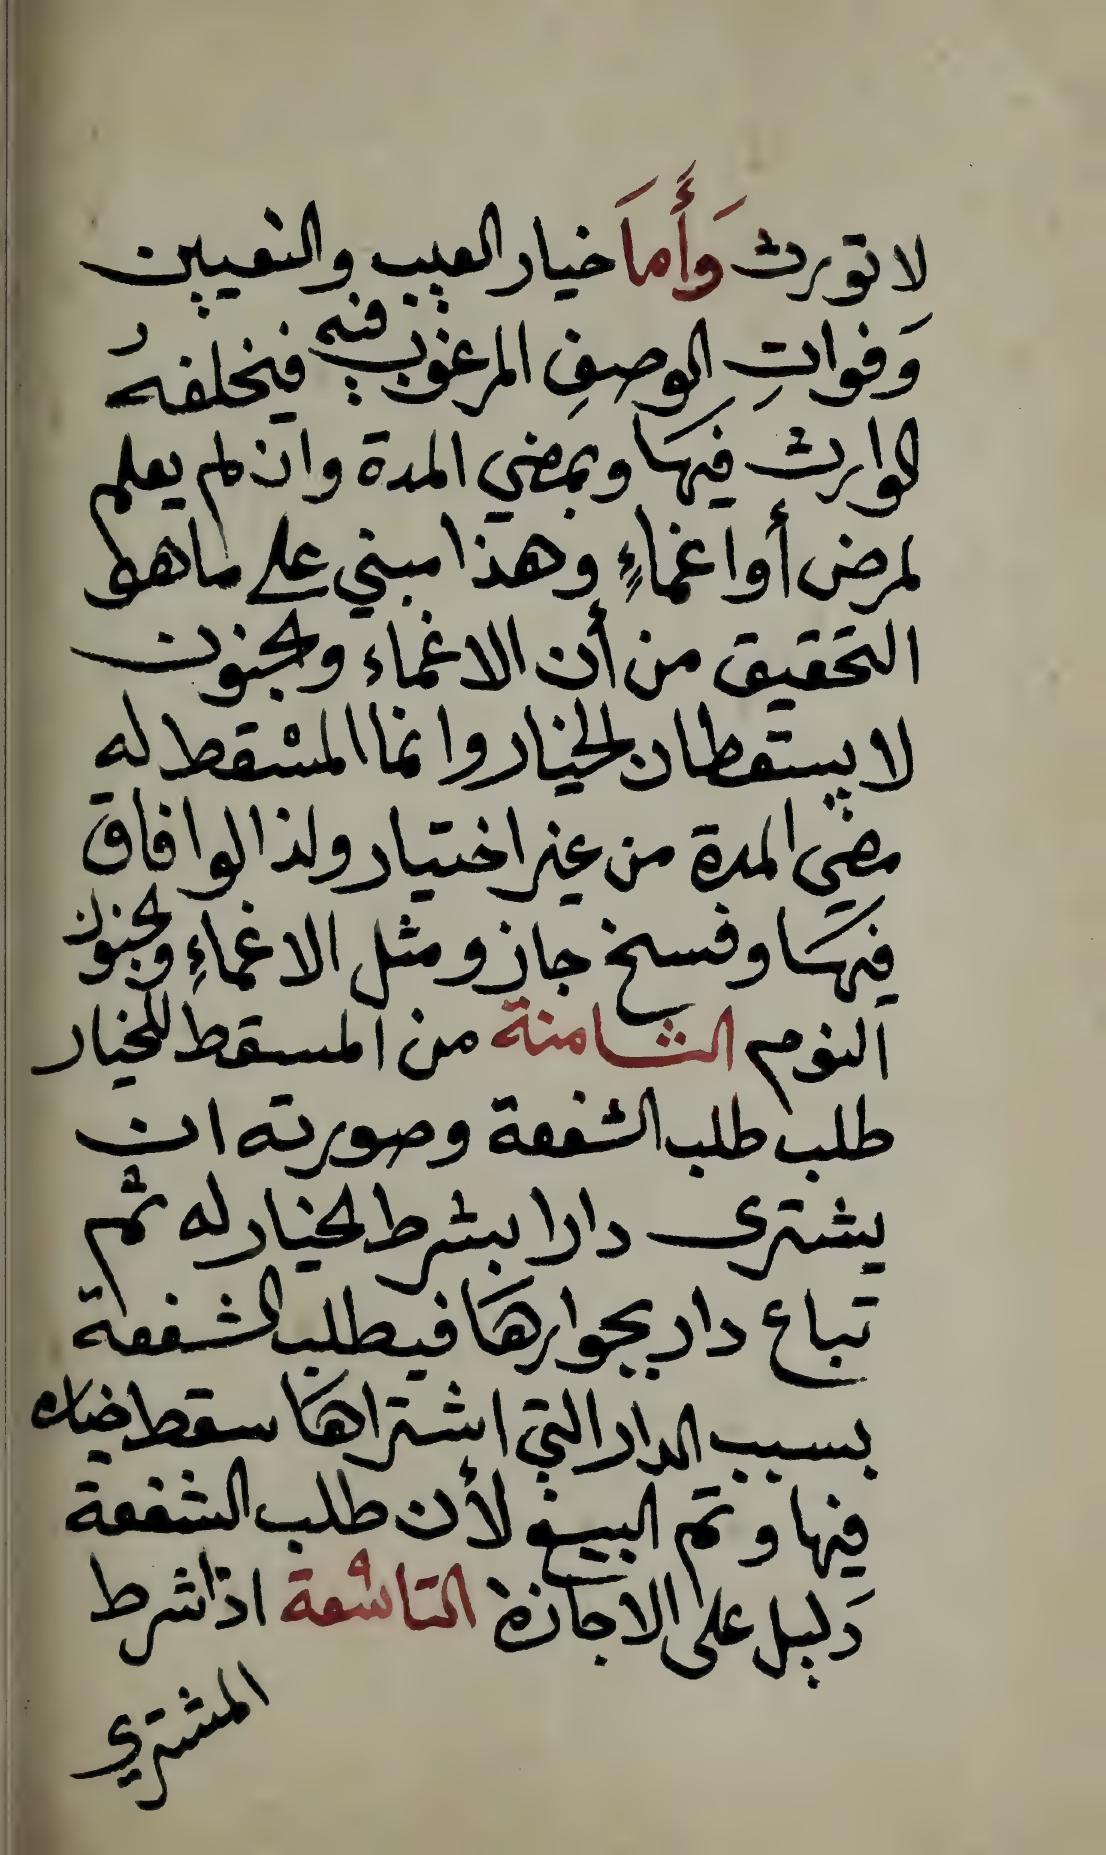 لا تورث وَأَمَا خيار العيب والتعيين
وَفواتِ الوصفِ المرغوب فيه فيخلفهُ
الوارث فيهَا وبمضي المدة وان لم يعلم
لمرض أو اغماءٍ وهذا مبني على ما هو
التحقيق من أن الاغماء والجنون
لا يسقطان الخيار وانما المسْقط له
مضي المدة من غير اختيار ولذا لو افاق
فيهَا وفسخ جاز ومثل الاغماءِ والجنون
النوم الثامنة من المسقط للخيار
طلب طلب الشفعة وصورته ان
يشترى دارا بشرط الخيار له ثم
تباع دار بجوارهَا فيطلب الشفعة
بسبب الدار التي اشتراهَا سقط خياره
فيها وتم البيع لأن طلب الشفعة
دَليل على الاجازة التاسْعة اذا شرط
المشتري